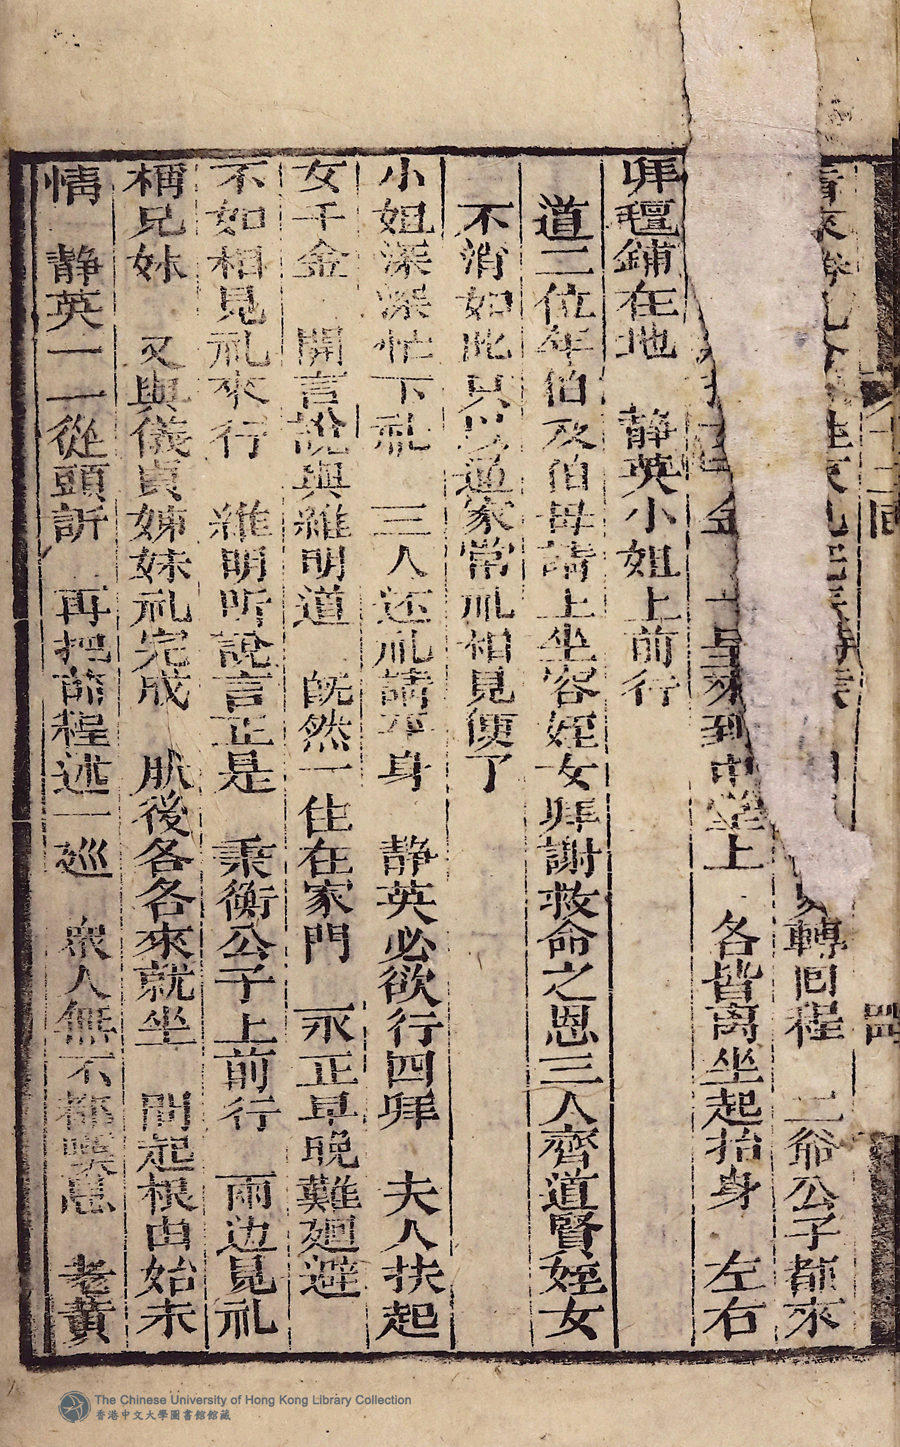 轉回程 二爺公子都來
金 到中堂上 各皆离坐起抬身 左右
拜毡鋪在地 靜英小姐上前行
道二位年伯及伯母請上坐容姪女拜謝救命之恩三人齊道賢姪女
不消如此只以通家常礼相見便了
小姐深深忙下礼 三人还礼請平身 靜英必欲行四拜 夫人扶起
女千金 開言說與維明道 旣然一住在家門 永正早晚難廻避
不如相見礼來行 維明所說言正是 秉衡公子上前行 兩边見礼
稱兄妹 又與儀貞姊妹礼完成 然後各各來就坐 問起根由始末
情 靜英一一從頭訴 再把前程述一廵 衆人無不稱嘆息 老黄
十二回
四
The Chinese University of Hong Kong Library Collection
香港中文大學圖書館館藏